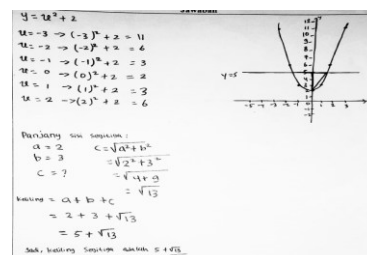 Jawaban
y = x² + 2
x = -3 → (-3)² + 2 = 11
x = -2 → (-2)² + 2 = 6
x = -1 → (-1)² + 2 = 3
x = 0 → (0)² + 2 = 2
x = 1 → (1)² + 2 = 3
x = 2 → (2)² + 2 = 6
y=5
Panjang sisi segitiga :
a = 2 c = √a² + b²
b = 3 = √2² + 3²
c = ? = √4 + 9
= √13
Keliling = a + b + c
= 2 + 3 + √13
= 5 + √13
Jadi, keliling segitiga adalah 5 + √13